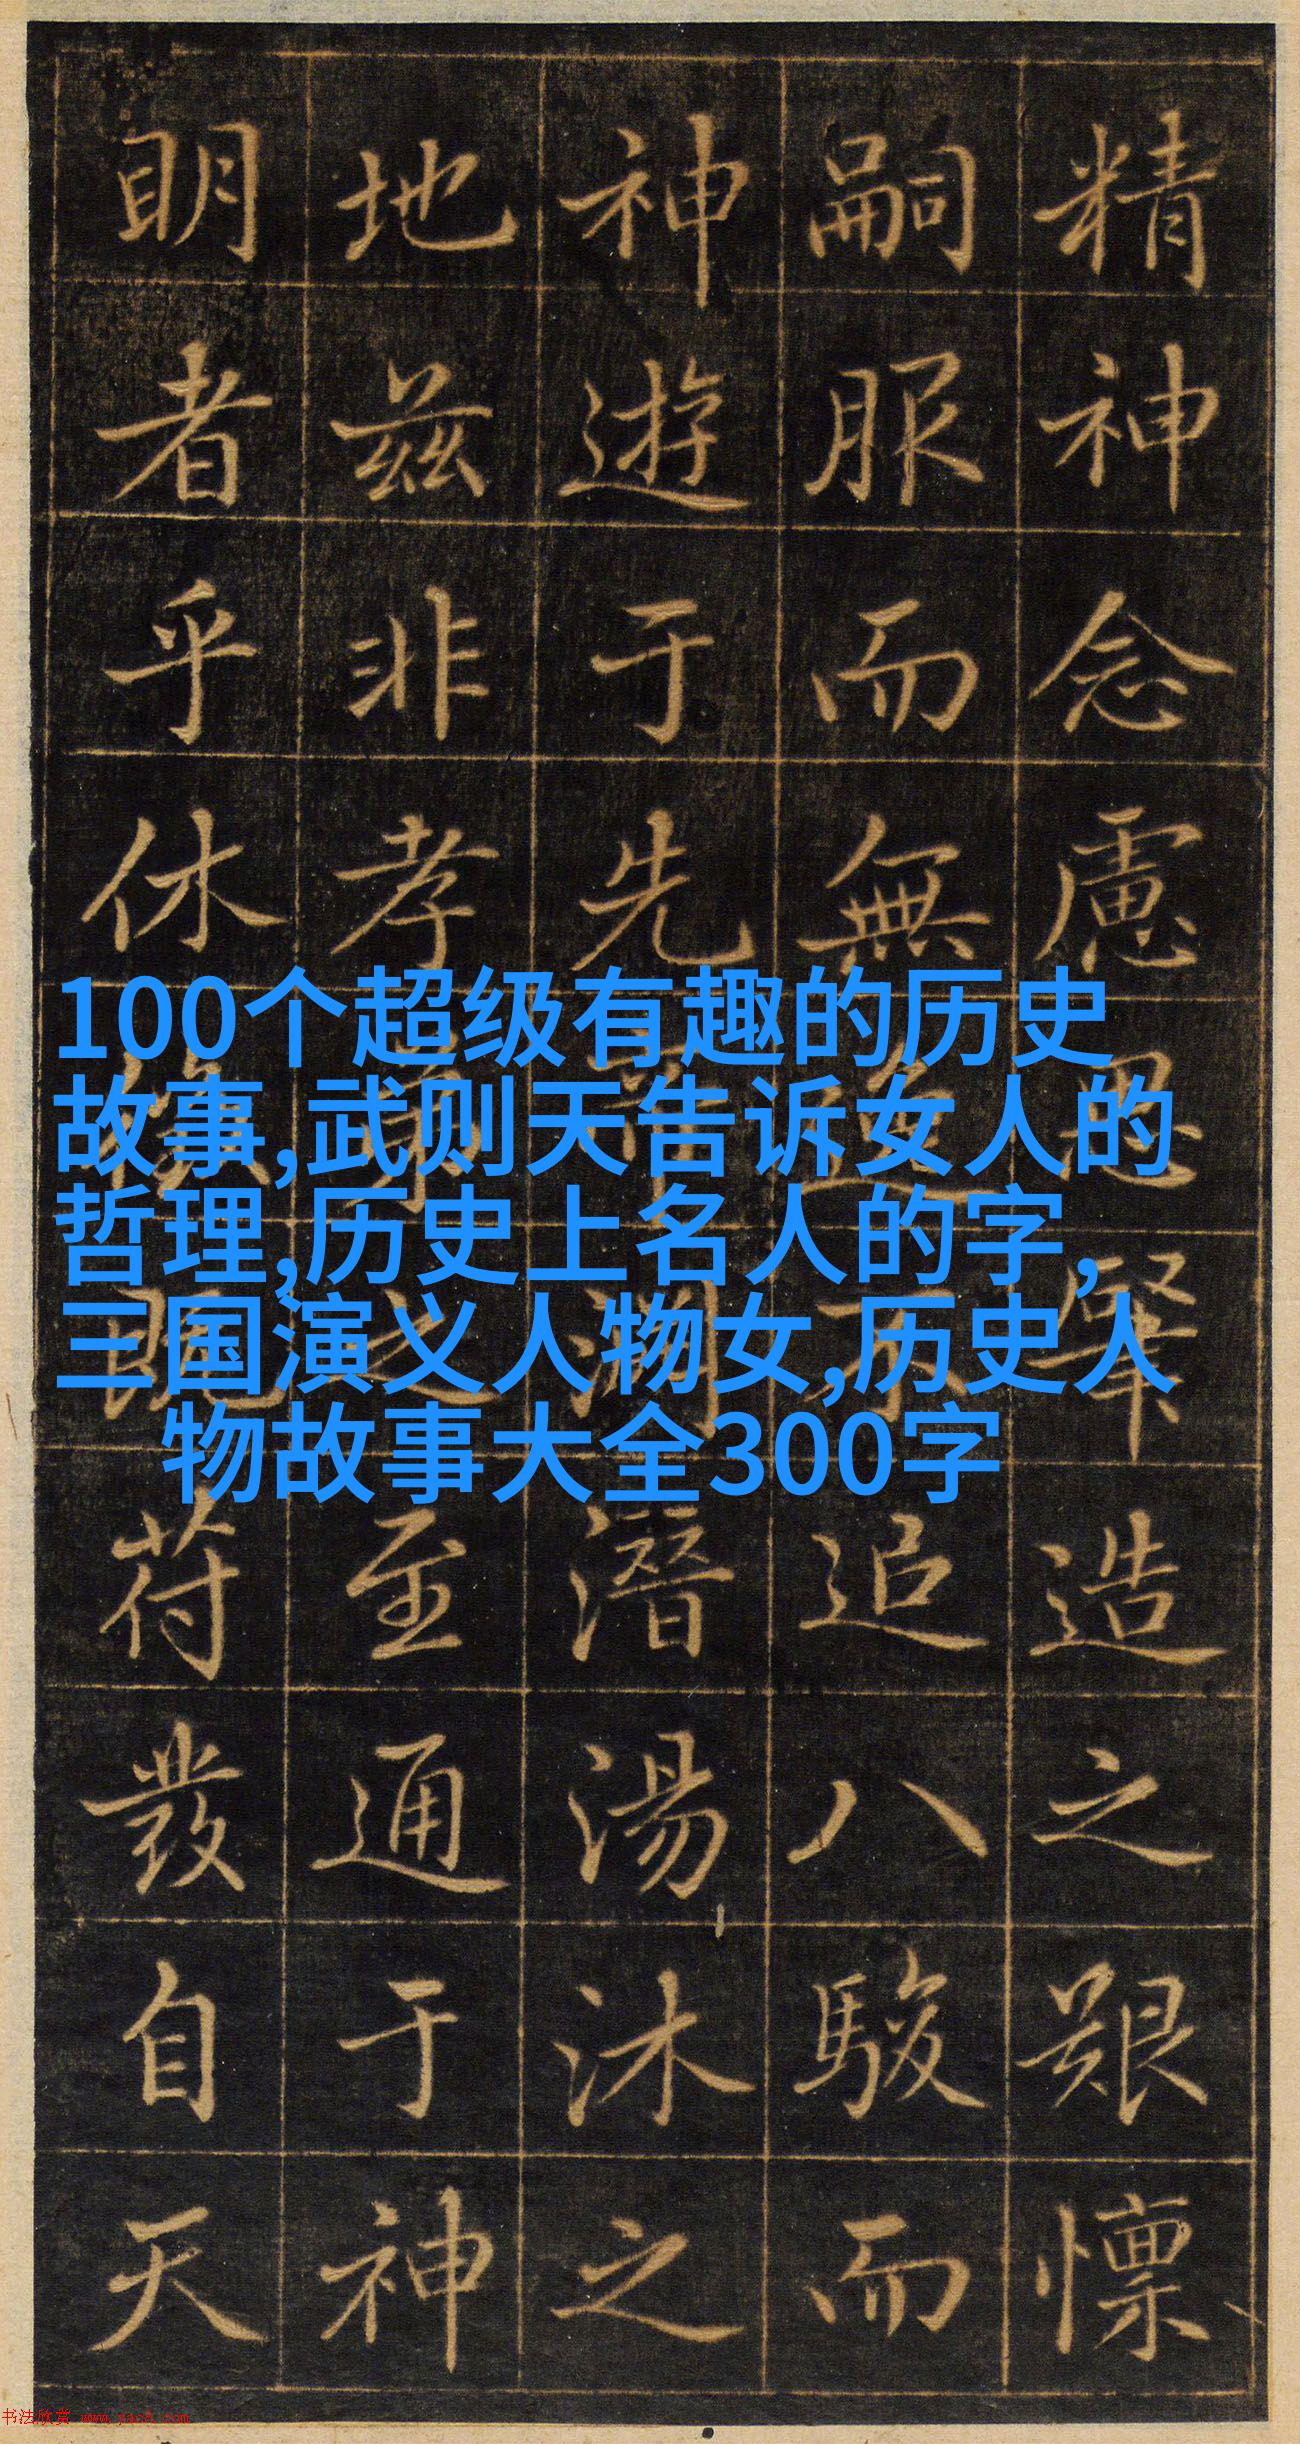 精神念慮思肇造之艱懍
嗣服而無追八駿而
神遊于先潛湯沐之
地茲非孝享之至通于神
明者乎休既苻發自天
100个超级有趣的历史
故事,武则天告诉女人的
哲理,历史上名人的字,
三国演义人物女,历史人
物故事大全300字
书法欣赏 www.yac8.com